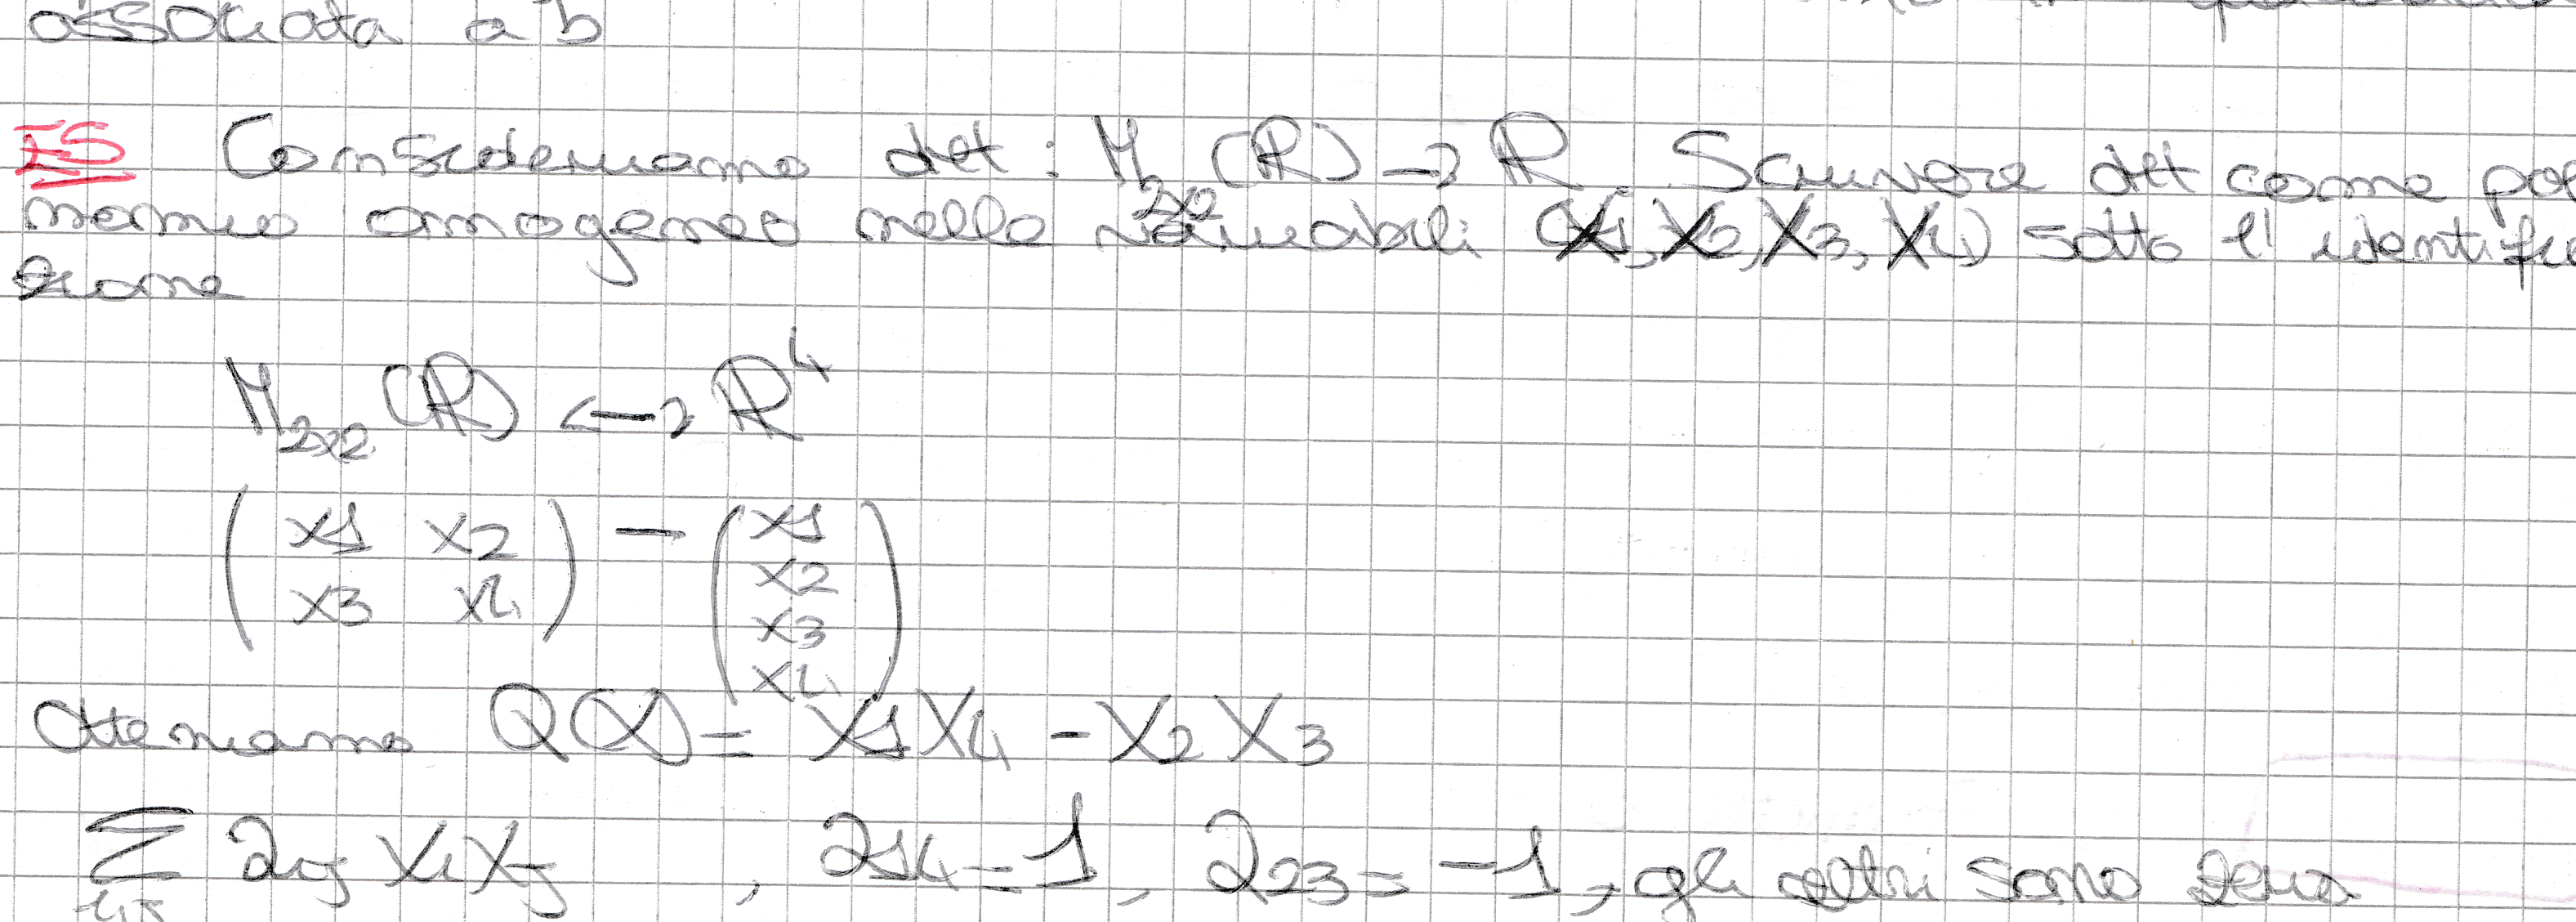 associata a b
ES Consideriamo det : M2x2 (ℝ) → ℝ. Scrivere det come pol
nomio omogeneo nelle variabili (X1, X2, X3, X4) sotto l' identific
zione
M2x2 (ℝ) ↔ ℝ^4
( x1 x2 ) — ( x1
x3 x4 x2
x3
x4 )
Otteniamo Q(X) = X1X4 - X2X3
Σ aij XiXj , a14 = 1, a23 = -1, gli altri sono zero
i,j